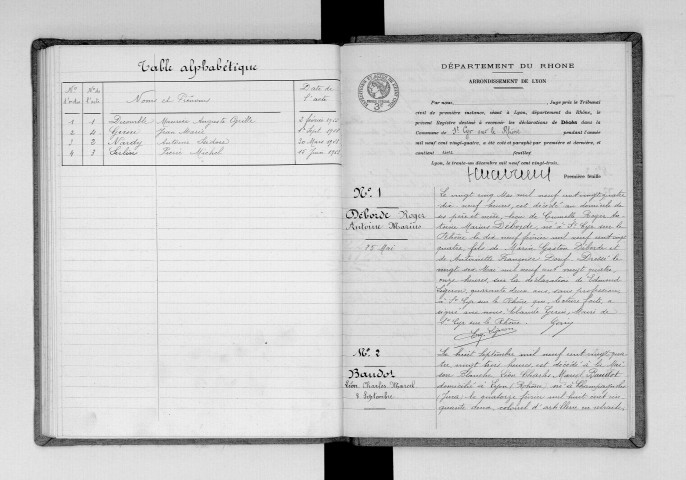 Table alphabétique
Nos d'ordre
Nos de l'acte
Noms et Prénoms
Date de l'acte
1 1 Maurice Auguste
2 4 Jean Marie
3 2 Nardy Antoine
4 3 Pierre Michel
DÉPARTEMENT DU RHONE
ARRONDISSEMENT DE LYON
Par nous, Juge près le Tribunal
civil de première instance, séant à Lyon, département du Rhône, le
présent Registre destiné à recevoir les déclarations de Décès dans la
Commune de St Cyr sur le Rhône pendant l'année
mil neuf cent vingt-quatre, a été coté et paraphé par première et dernière, et
contient feuillets
Lyon, le trente-un décembre mil neuf cent vingt-trois.
Première feuille
No. 1
Déborde Roger
Antoine Marius
25 Mai
Le vingt cinq Mai mil neuf cent vingt quatre
dix neuf heures, est décédé au domicile de
ses père et mère, Roger An
toine Marius Déborde, né à St Cyr sur le
Rhône le dix février mil neuf cent vingt
quatre, fils de Marie Gaston Déborde et
de Antoinette Françoise Dressé le
vingt six Mai mil neuf cent vingt quatre,
onze heures, sur la déclaration de Edmond
quarante deux ans, sans profession
à St Cyr sur le Rhône qui, lecture faite, a
signé avec nous, Claude Gerin, Maire de
St Cyr sur le Rhône.
No. 2
Baudot
Léon Charles Marcel
8 Septembre
Le huit Septembre mil neuf cent vingt qua
tre vingt trois heures, est décédé à la Mai
son Blanche, Léon Charles Marcel Baudot
domicilié à Lyon (Rhône) né à Champagnole
(Jura) le quatorze février mil huit cent cin
quante deux, colonel d'artillerie en retraite,